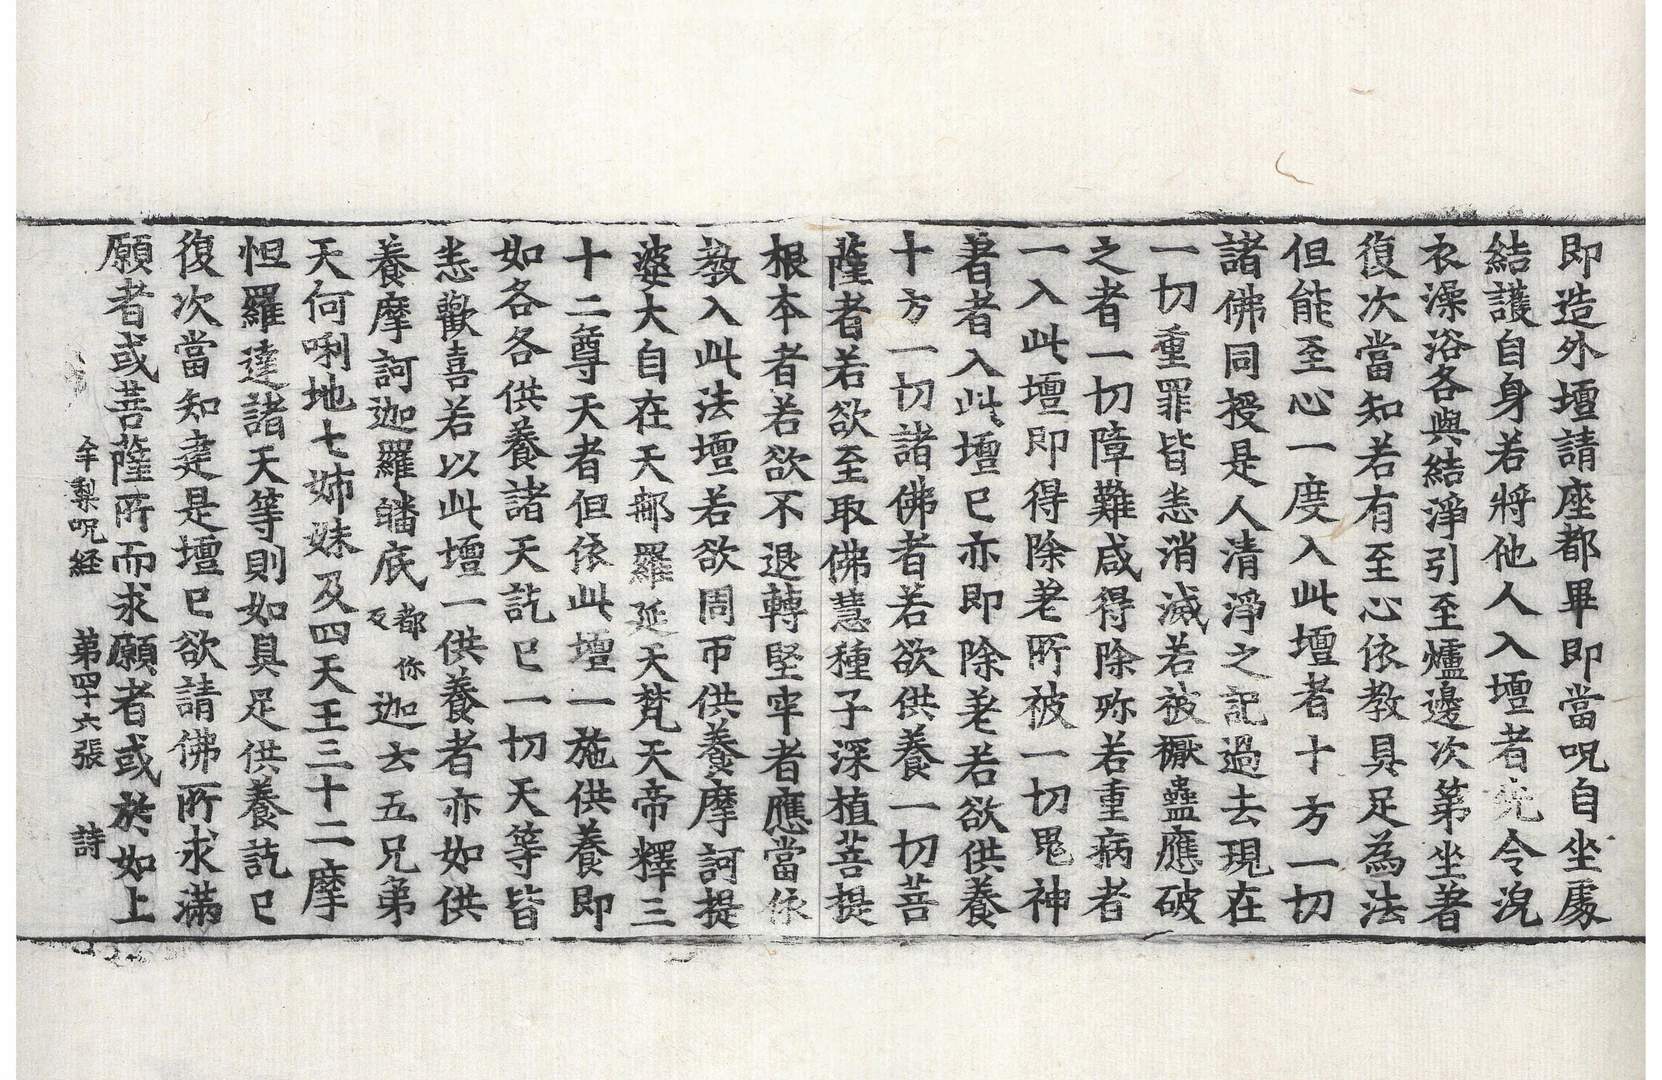 即造外壇請座都畢即當呪自坐處
結護自身若將他人入壇者先令洗
衣澡浴各與結淨引至爐邊次第坐著
復次當知若有至心依教具足為法
但能至心一度入此壇者十方一切
諸佛同授是人清淨之記過去現在
一切重罪皆悉消滅若被橛蠱應破
之者一切障難咸得除殄若重病者
一入此壇即得除差所被一切鬼神
著者入此壇已亦即除差若欲供養
十方一切諸佛者若欲供養一切菩
薩者若欲至取佛慧種子深植菩提
根本者若欲不退轉堅牢者應當依
教入此法壇若欲周帀供養摩訶提
婆大自在天郍羅延天梵天帝釋三
十二尊天者但依此壇一施供養即
如各各供養諸天訖已一切天等皆
悉歡喜若以此壇一供養者亦如供
養摩訶迦羅皤底都你反迦去五兄弟
天何唎地七姊妹及四天王三十二摩
怛羅達諸天等則如具足供養訖已
復次當知建是壇已欲請佛所求滿
願者或菩薩所而求願者或於如上
牟梨呪経　第四十六張　詩